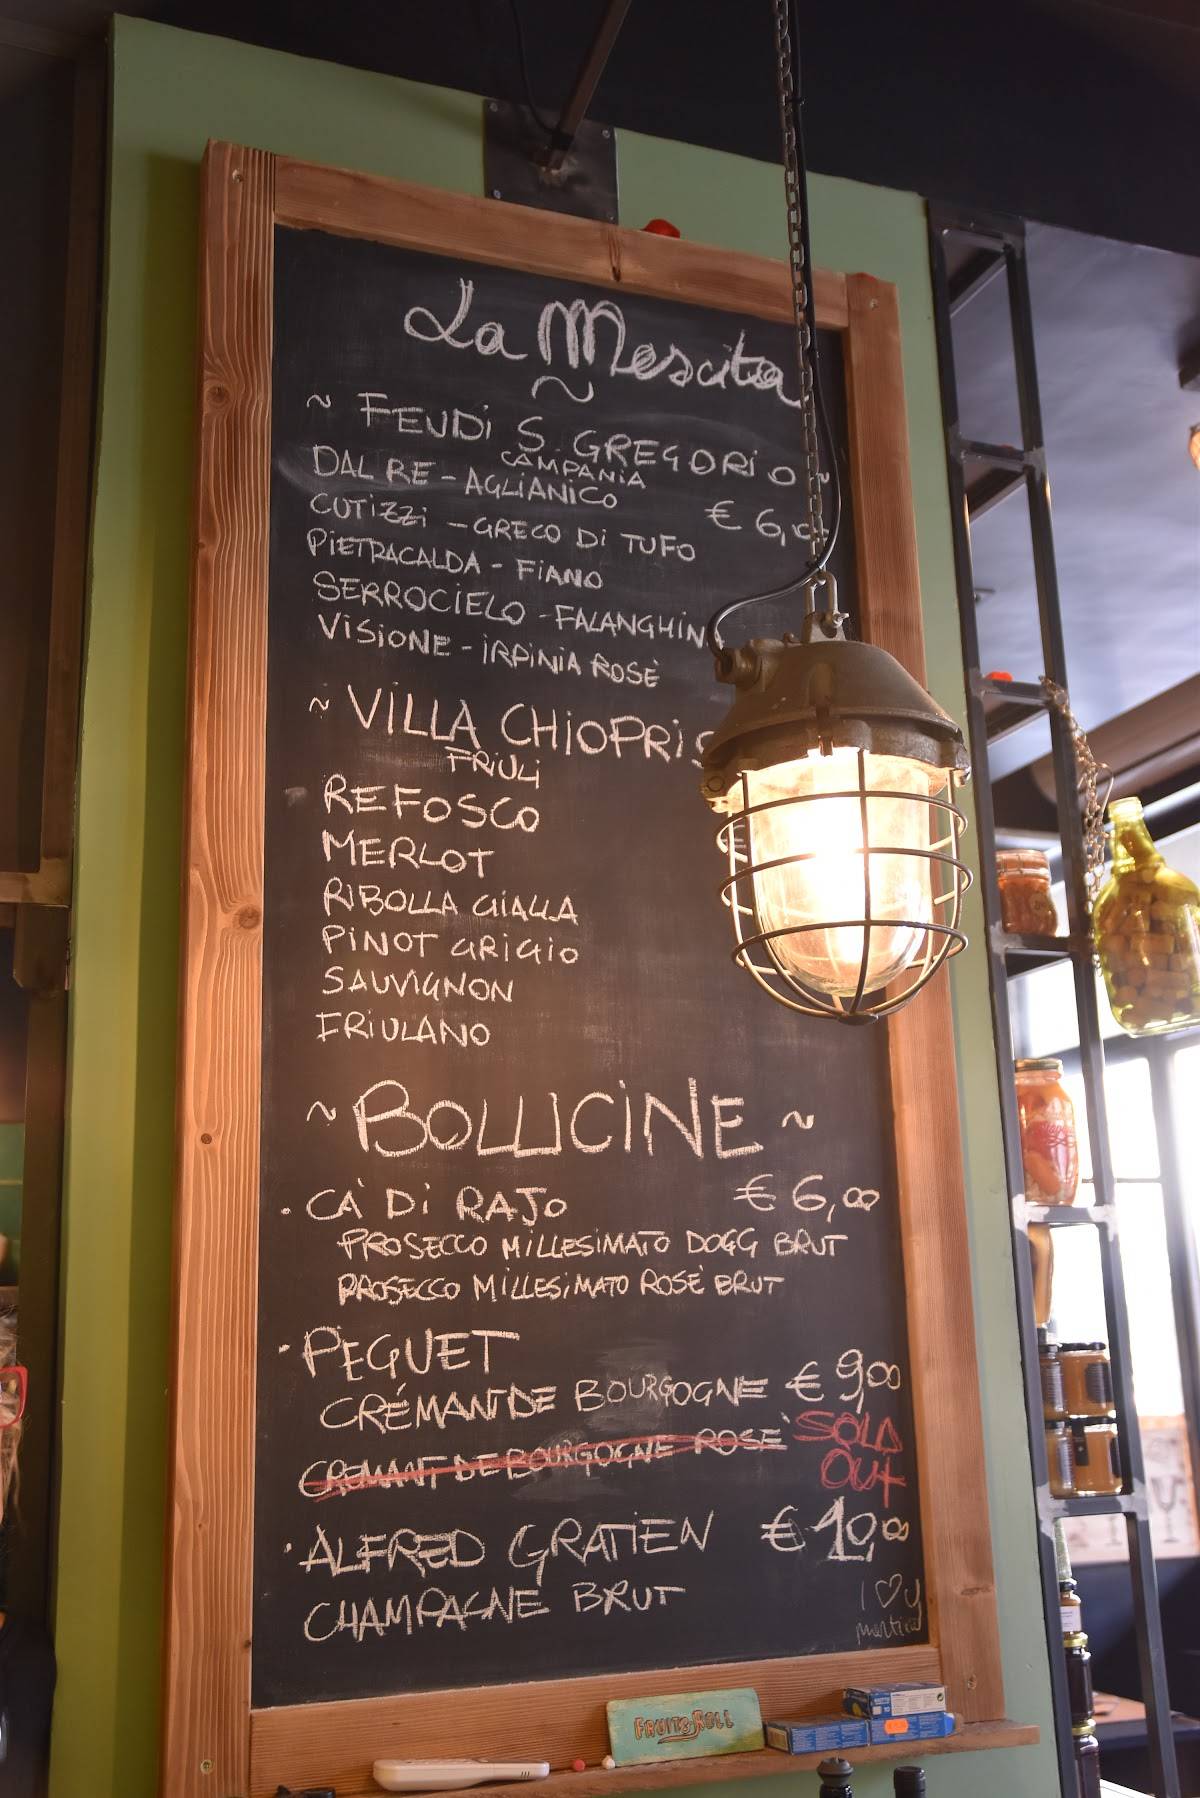 La Mescita
~
~ FEUDI S. GREGORIO ~
CAMPANIA
DAL RE - AGLIANICO
€ 6,00
CUTIZZI - GRECO DI TUFO
PIETRACALDA - FIANO
SERROCIELO - FALANGHINA
VISIONE - IRPINIA ROSÈ
~ VILLA CHIOPRIS
FRIULI
REFOSCO
MERLOT
€
RIBOLLA GIALLA
PINOT GRIGIO
SAUVIGNON
FRIULANO
~ BOLLICINE ~
· CA' DI RAJO € 6,00
PROSECCO MILLESIMATO DOGG BRUT
PROSECCO MILLESIMATO ROSÈ BRUT
· PEGUET
CRÉMANT DE BOURGOGNE € 9,00
CREMANT DE BOURGOGNE ROSÈ SOLD OUT
· ALFRED GRATIEN € 10,00
CHAMPAGNE BRUT
I ♡ U
FRUIT & ROLL